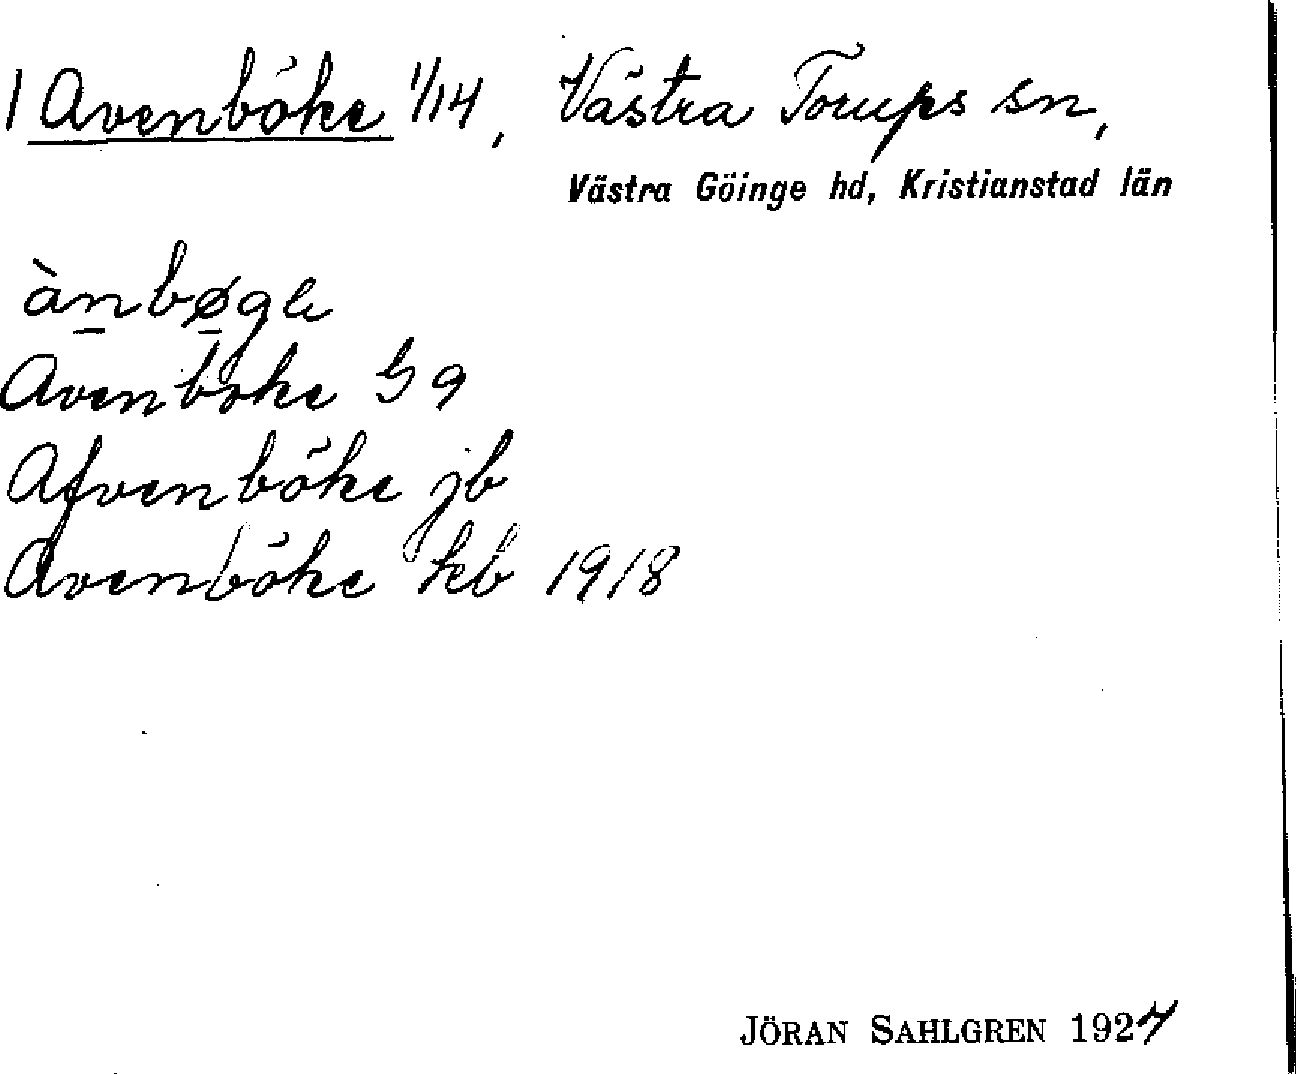 1 Avenböke 1/14, Västra Torups sn,
Västra Göinge hd, Kristianstad län
ànbøgə
Avenböke G a
Afvenböke jb
Avenböke kb 1918
JÖRAN SAHLGREN 1927